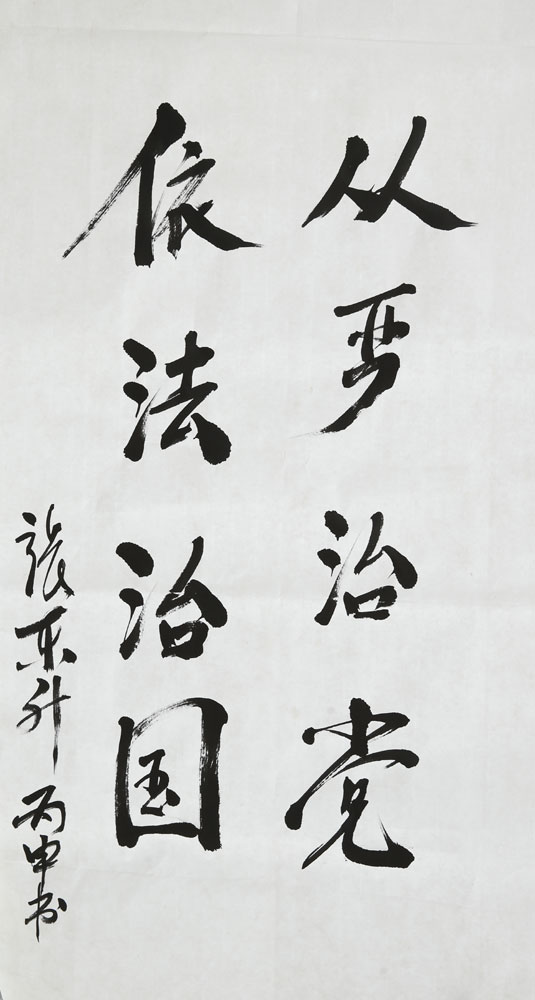 从严治党
依法治国
张东升 丙申书